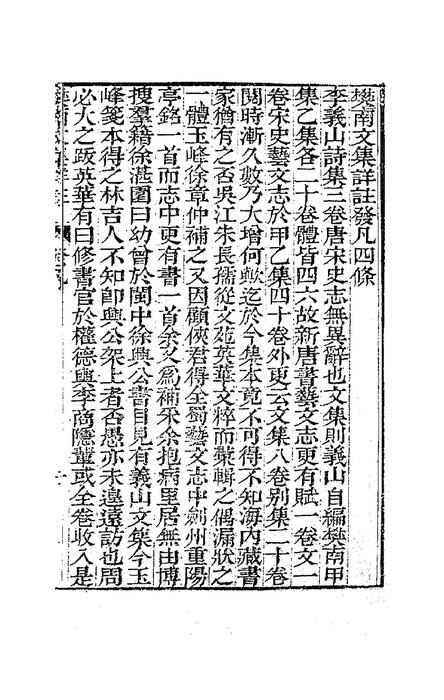 樊南文集詳註發凡四條
李義山詩集三卷唐宋史志無異辭也文集則義山自編樊南甲
集乙集各二十卷體皆四六故新唐書藝文志更有賦一卷文一
卷宋史藝文志於甲乙集四十卷外更云文集八卷别集二十卷
閱時漸久數乃大增何歟迄於今集本竟不可得不知海內藏書
家猶有之否吳江朱長孺從文苑英華文粹而蒐輯之偶漏狀之
一體玉峰徐章仲補之又因顧俠君得全蜀藝文志中劒州重陽
亭銘一首而志中更有書一首余又為補采余抱病里居無由博
搜羣籍徐湛園曰幼曾於閩中徐興公書目見有義山文集今玉
峰箋本得之林吉人不知卽興公架上者否愚亦未遑遠訪也周
必大之跋英華有曰修書官於權德輿李商隱輩或全卷收入是